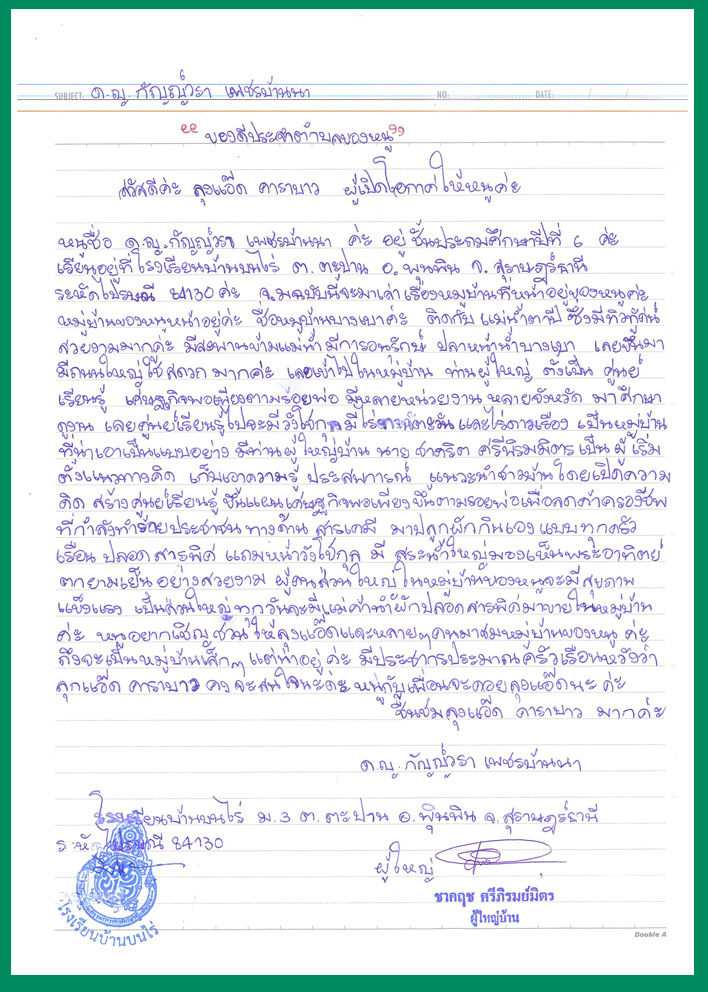 SUBJECT: ด.ญ. กัญญ์วรา เพชรบ้านนา NO: DATE: / /
“ของดีประจำตำบลของหนู”
สวัสดีค่ะ ลุงแอ๊ด คาราบาว ผู้เปิดโอกาสให้หนูค่ะ
หนูชื่อ ด.ญ. กัญญ์วรา เพชรบ้านนา ค่ะ อยู่ ชั้นประถมศึกษาปีที่ 6 ค่ะ
เรียนอยู่ที่ โรงเรียนบ้านบนไร่ ต. ตะปาน อ. พุนพิน จ. สุราษฎร์ธานี
ระหัดไปรษณี 84130 ค่ะ จ.มฉบับนี้จะมาเล่า เรื่องหมู่บ้านที่หน้าอยู่ของหนูค่ะ
หมู่บ้านของหนูหน้าอยู่ค่ะ ชื่อหมู่บ้านบางเบาค่ะ ติดกับ แม่น้ำตาปี ซึ่งมีทิวทัศน์
สวยงามมากค่ะ มีสะพานข้ามแม่น้ำ มีการอนุรักษ์ ปลาหน้าน้ำบางเบา เลยขึ้นมา
มีถนนใหญ่ใช้สดวก มากค่ะ เลยเข้าไปในหมู่บ้าน ท่านผู้ใหญ่ ตั้งเป็น ศูนย์
เรียนรู้ เศษฐกิจพอเพียงตามรอยพ่อ มีหลายหน่วยงาน หลายจังหวัด มาศึกษา
ดูงาน เลยศูนย์เรียนรู้ไปจะมีวังโชกุล มีไร่ทานตะวัน และไร่ดาวเรือง เป็นหมู่บ้าน
ที่น่าเอาเป็นแบบอย่าง มีท่านผู้ใหญ่บ้าน นาย ชาคริต ศรีพิรมมิตร เป็น ผู้ เริ่ม
ตั้งแนวทางคิด เก็บเอาความรู้ ประสบการณ์ แนวะนำชาวบ้าน โดยเปิดความ
คิด สร้างศูนย์เรียนรู้ ขึ้นแผนเศษฐกิจพอเพียง ขึ้นตามรอยพ่อเพื่อลดค่าครองชีพ
ที่กำลังทำร้อยประชาชน ทางด้าน สารเคมี มาปลูกผักกินเอง แบบ ทุกครัว
เรือน ปลอด สารพิศ แถมหน้าวังโชกุล มี สระน้ำใหญ่มองเห็นพระอาทิตย์
ตกยามเย็น อย่างสวยงาม ผู้คนส่วนใหญ่ ในหมู่บ้านของหนูจะมีสุขภาพ
แข็งแรง เป็นส่วนใหญ่ ทุกวันจะมีแม่ค้านำผักปลอดสารพิศมาขายในหมู่บ้าน
ค่ะ หนูอยากเชิญชวนให้ลุงแอ๊ดและหลายๆคนมาชมหมู่บ้านของหนู ค่ะ
ถึงจะเป็นหมู่บ้านเล็กๆ แต่น่าอยู่ค่ะ มีประชากรประมาณ ครัวเรือนหวังว่า
ลุกแอ๊ด คาราบาว คงจะสนใจนะค่ะ หนูกับเพื่อนจะคอยลุงแอ๊ดนะ ค่ะ
ชื่นชมลุงแอ๊ด คาราบาว มากค่ะ
ด.ญ. กัญญ์วรา เพชรบ้านนา
โรงเรียนบ้านบนไร่ ม.3 ต. ตะปาน อ. พุนพิน จ. สุราษฎร์ธานี
ระหัสไปรษณี 84130
ผู้ใหญ่
ชาคฤช ศรีภิรมย์มิตร
ผู้ใหญ่บ้าน
โรงเรียนบ้านบนไร่
Double A